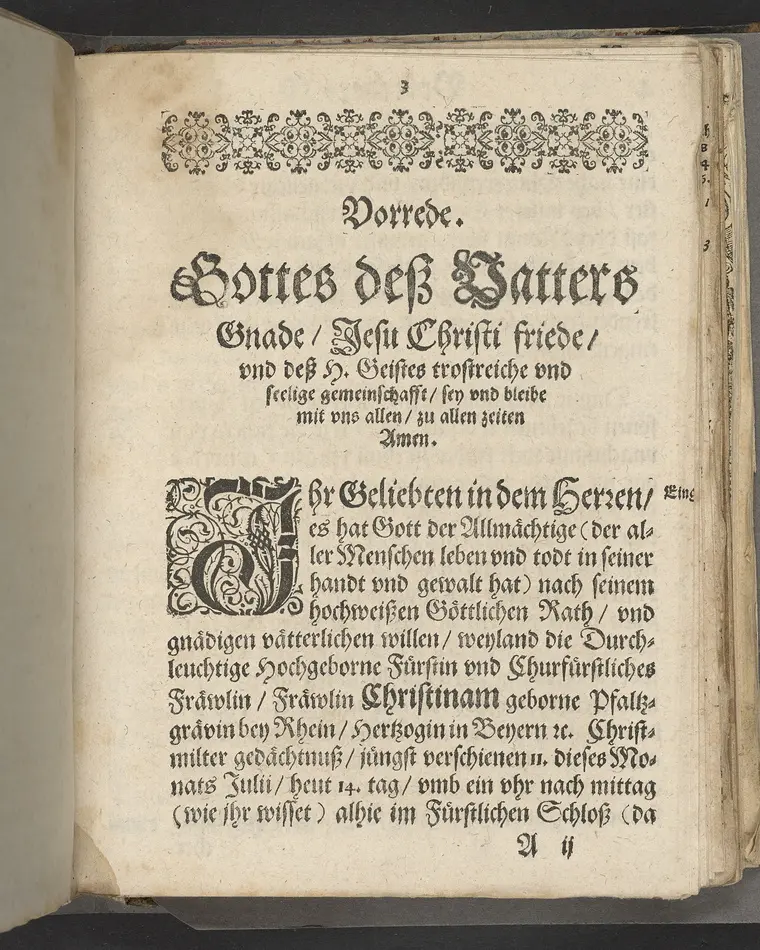 3
Vorrede.
Gottes deß Vatters
Gnade / Jesu Christi friede /
vnd deß H. Geistes trostreiche vnd
seelige gemeinschafft / sey vnd bleibe
mit vns allen / zu allen zeiten
Amen.
Ihr Geliebten in dem Herren /
Eing
es hat Gott der Allmächtige (der al-
ler Menschen leben vnd todt in seiner
handt vnd gewalt hat) nach seinem
hochweißen Göttlichen Rath / vnd
gnädigen vätterlichen willen / weyland die Durch-
leuchtige Hochgeborne Fürstin vnd Churfürstliches
Fräwlin / Fräwlin Christinam geborne Pfaltz-
grävin bey Rhein / Hertzogin in Beyern ꝛc. Christ-
milter gedächtnuß / jüngst verschienen 11. dieses Mo-
nats Julii / heut 14. tag / vmb ein vhr nach mittag
(wie jhr wisset) alhie im Fürstlichen Schloß (da
A ij